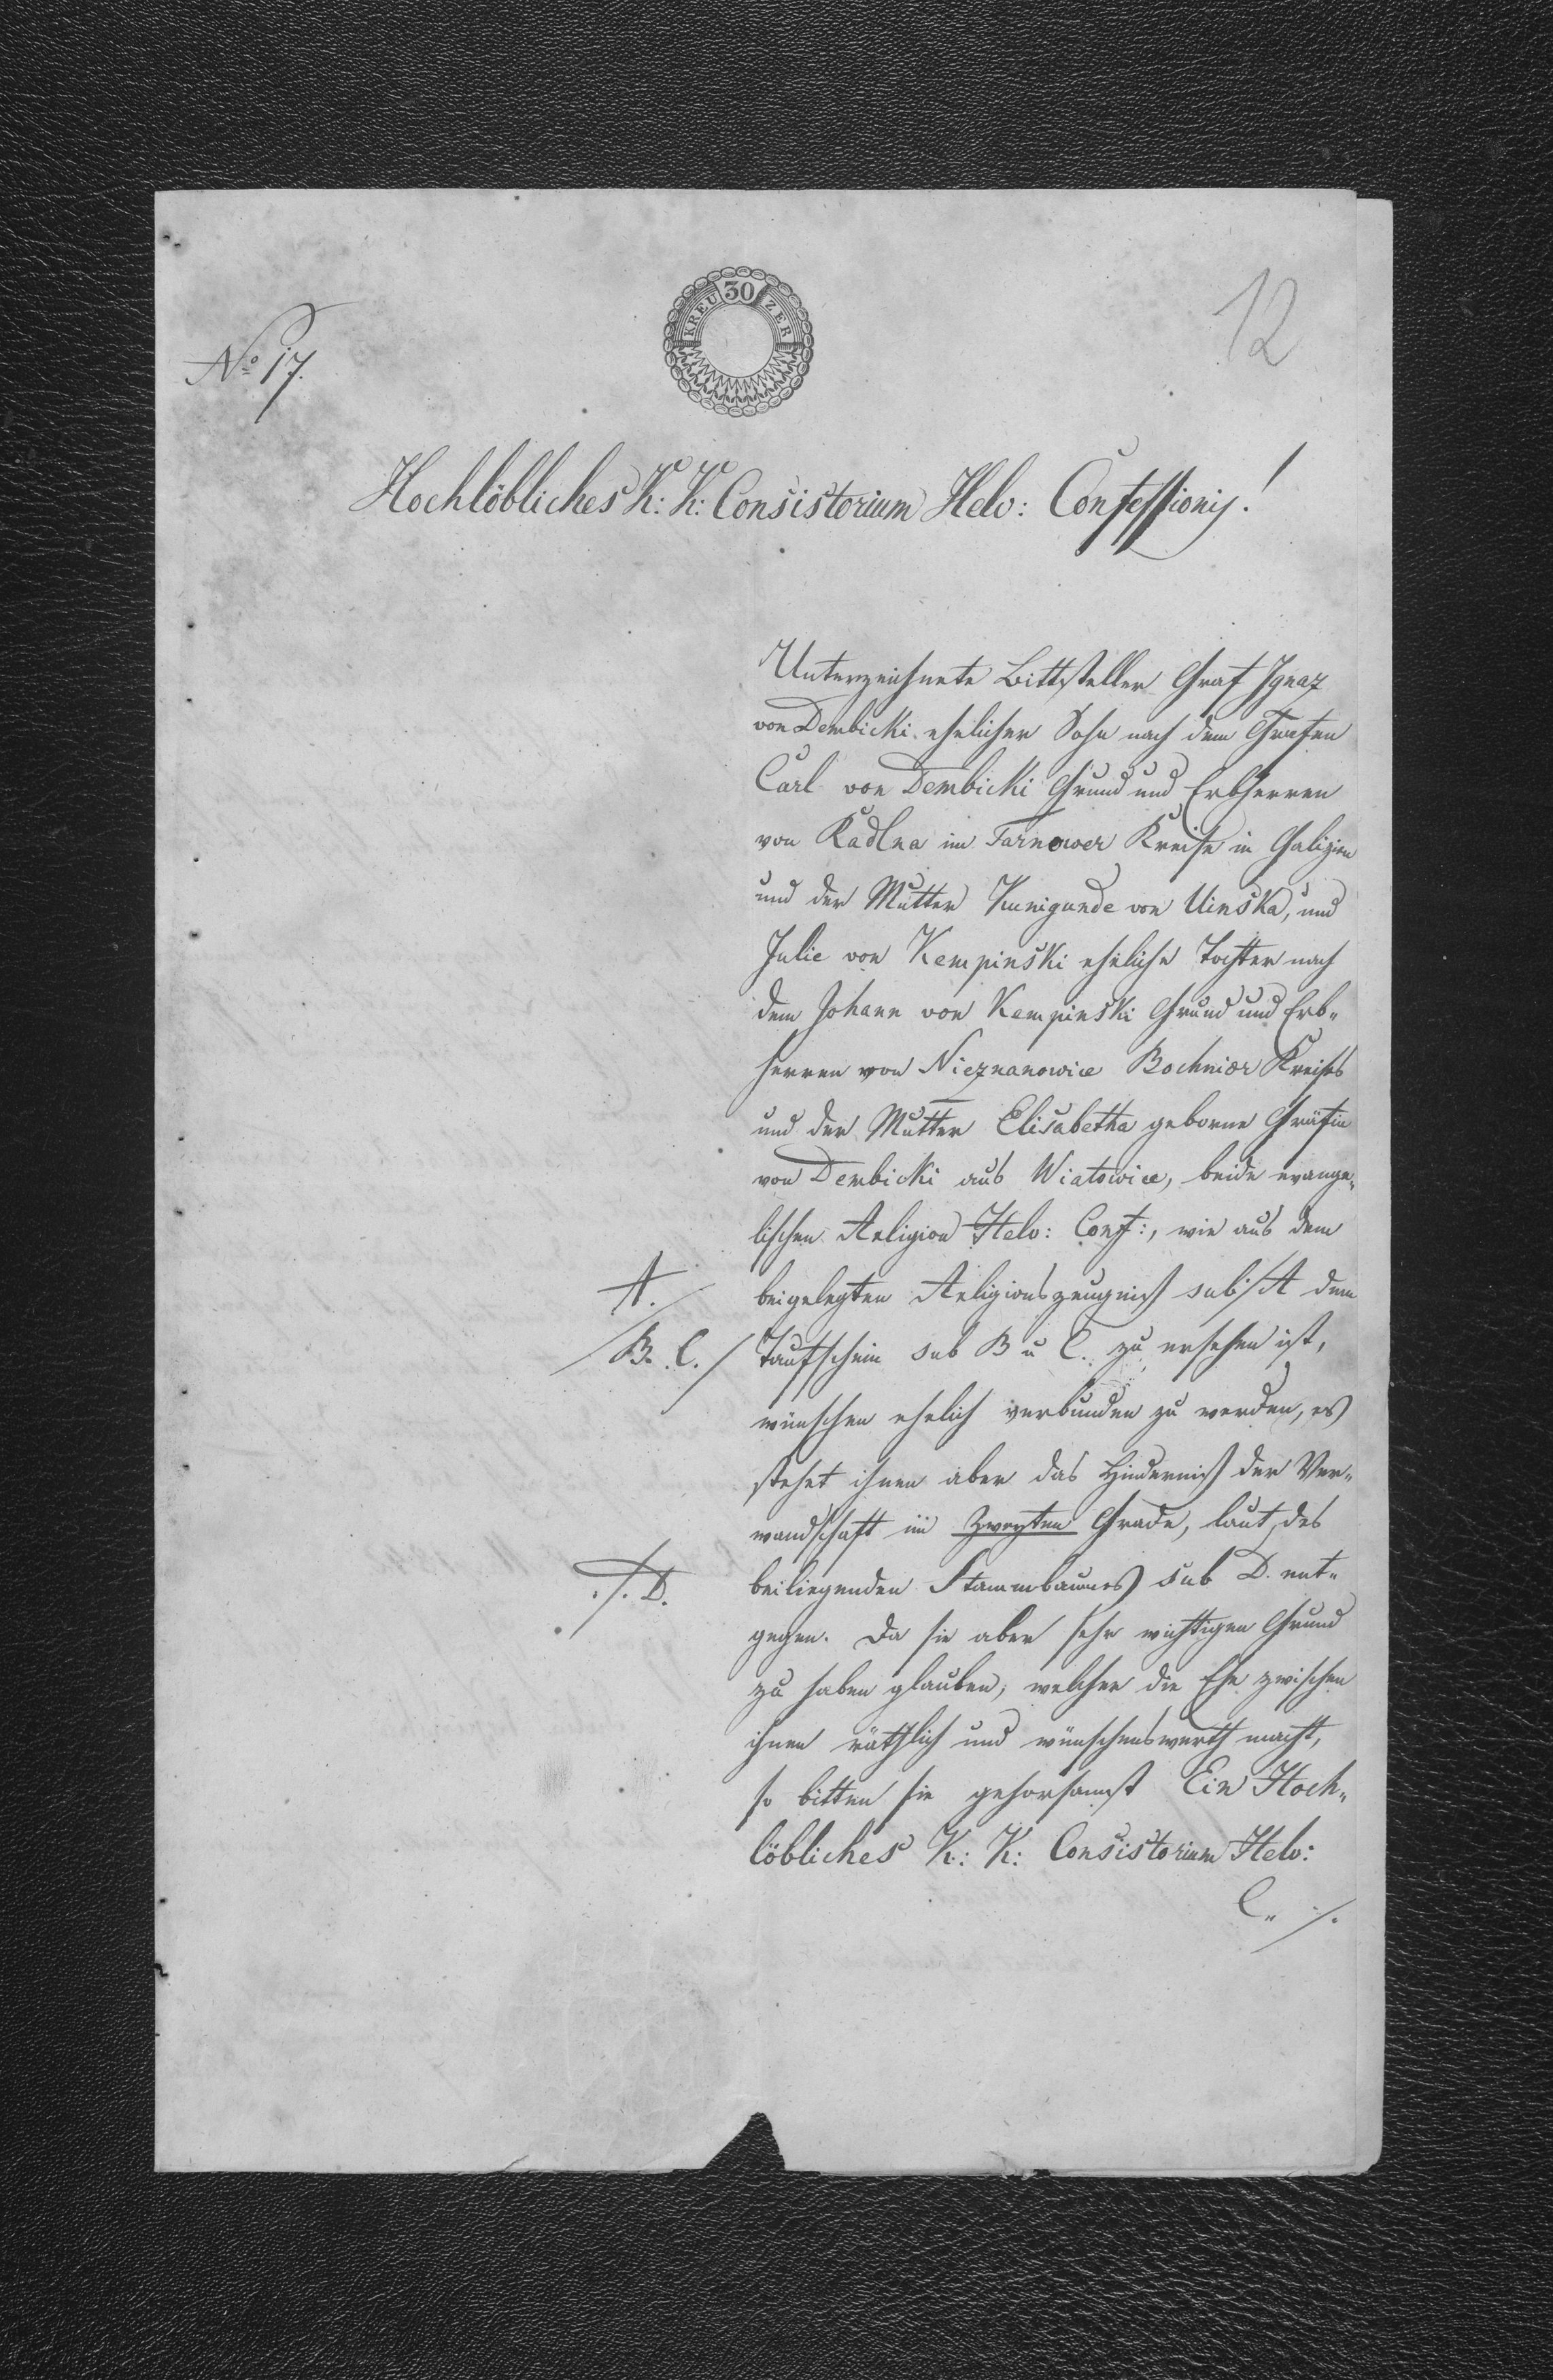 12
30
KREUZER
No 17.
Hochlöbliches K: K: Consistorium Helv: Confessionis!
Unterzeichnete Bittsteller Graf Ignaz
von Dembicki ehelicher Sohn nach dem Grafen
Carl von Dembicki Grund und Erbherren
von Radlna im Tarnower Kreise in Galizien
und der Mutter Kunigunde von Uinska, und
Julie von Kempinski eheliche Tochter nach
dem Johann von Kempinski Grund und Erb„
herren von Nieznanowice Bochnier Kreises
und der Mutter Elisabetha geborne Gräfin
von Dembicki aus Wiatowice, beide evange„
lischen Religion Helv: Conf:, wie aus dem
A. beigelegten Religionszeugniß sub /A dem
B. C. / Taufschein sub B u C. zu ersehen ist,
wünschen ehelich verbunden zu werden, es
stehet ihnen aber das Hinderniß der Ver„
wandschaft im Zweyten Grade, laut des
./. D. beiliegenden Stammbaumes sub D. ent„
gegen. Da sie aber sehr wichtigen Grund
zu haben glauben, welcher die Ehe zwischen
ihnen räthlich und wünschenswerth macht,
so bitten sie gehorsamst Ein Hoch„
löbliches K: K: Consistorium Helv:
C„ ./.